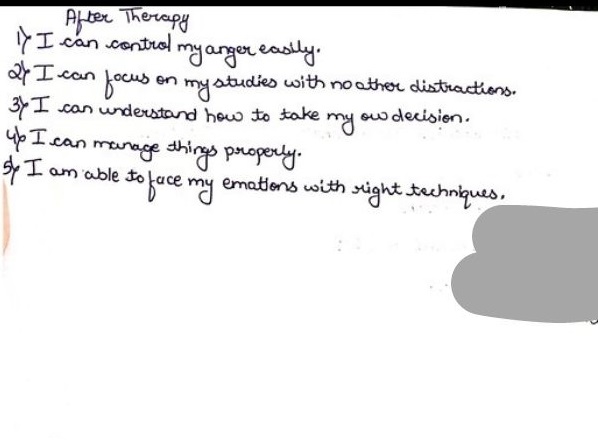 After Therapy
1) I can control my anger easily.
2) I can focus on my studies with no other distractions.
3) I can understand how to take my ow decision.
4) I can manage things properly.
5) I am able to face my emotions with right techniques.